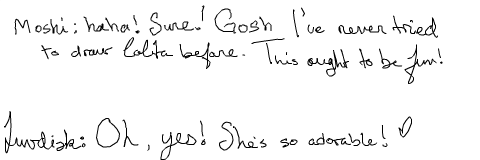 Moshi: haha! Sure! Gosh I've never tried
to draw Lolita before. This ought to be fun!
Luvdisk: Oh, yes! She's so adorable! ♡